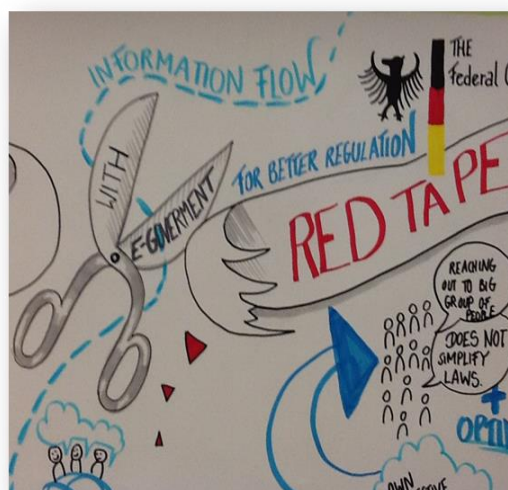 INFORMATION FLOW
THE
Federal
WITH
E-GOVERMENT
FOR BETTER REGULATION
RED TAPE
REACHING
OUT TO BIG
GROUP OF
PEOPLE
DOES NOT
SIMPLIFY
LAWS.
+